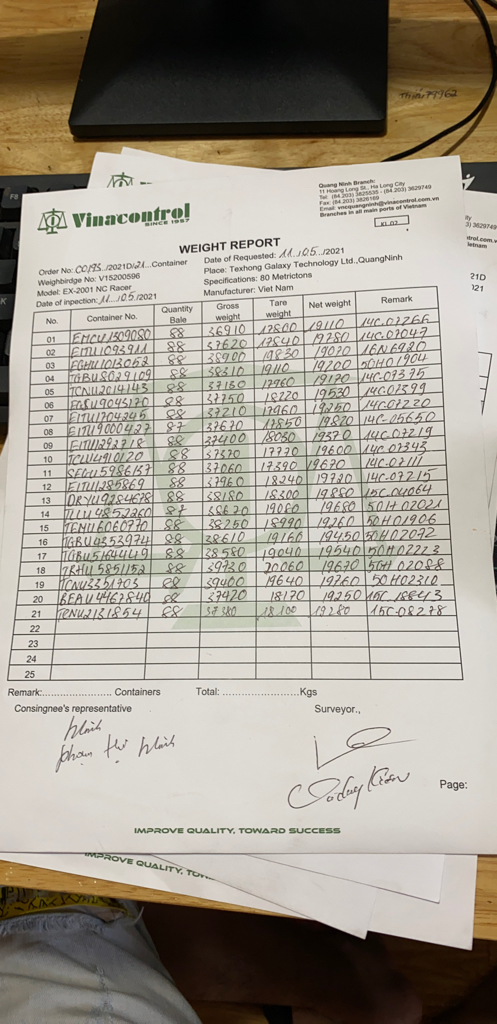 THIỆU 79962
F8
Quang Ninh Branch:
11 Hoang Long St., Ha Long City
Tel: (84.203) 3825535 - (84.203) 3629749
Fax: (84.203) 3826169
Email: vncquangninh@vinacontrol.com.vn
Branches in all main ports of Vietnam
KL 02
Vinacontrol
SINCE 1957
WEIGHT REPORT
Order No: /2021D/ Container
Date of Requested: 11/05/2021
Weighbirdge No: V15200596
Place: Texhong Galaxy Technology Ltd.,QuangNinh
Model: EX-2001 NC Racer
Specifications: 80 Metrictons
Date of inpection: 11/05/2021
Manufacturer: Viet Nam
No. Container No. Quantity Bale Gross weight Tare weight Net weight Remark
01 EMCU1309080 88 36910 17800 19110 14C-07266
02 EITU1093911 88 37620 17840 19780 14C-07047
03 88 38900 19830 19070 16N6920
04 TGBU8029109 88 38310 19110 19200 50H01904
05 TCNU2014143 88 37130 17960 19170 14C-07375
06 EGSU9045170 88 37750 18220 19530 14C-07399
07 EITU1704245 88 37210 17960 19250 14C-07220
08 EITU9000427 87 37670 17850 19820 14C-05650
09 EITU1292718 88 37400 18030 19370 14C-07219
10 TCLU4910120 88 37370 17770 19600 14C-07343
11 SEGU5986137 88 37060 17390 19670 14C-07111
12 EITU1285869 88 37960 18240 19720 14C-07215
13 DRYU9284678 88 38180 18300 19880 15C-04064
14 TLLU4852260 19080 19680 50H02021
15 TEMU6060770 88 38250 18990 19260 50H01906
16 TGBU4353974 88 38610 19160 19450 50H02092
17 TGBU5164449 88 38580 19040 19540 50H02223
18 88 39730 20060 19670 50H02088
19 TCNU3351703 88 19640 19760 50H02310
20 BEAU4467840 88 37420 18170 19250 15C-18843
21 TCNU2131854 88 37380 18100 19280 15C-08278
22
23
24
25
Remark:.................... Containers Total: ......................Kgs
Consingnee's representative
Surveyor.,
Minh
phạm thị Minh
Page:
IMPROVE QUALITY, TOWARD SUCCESS